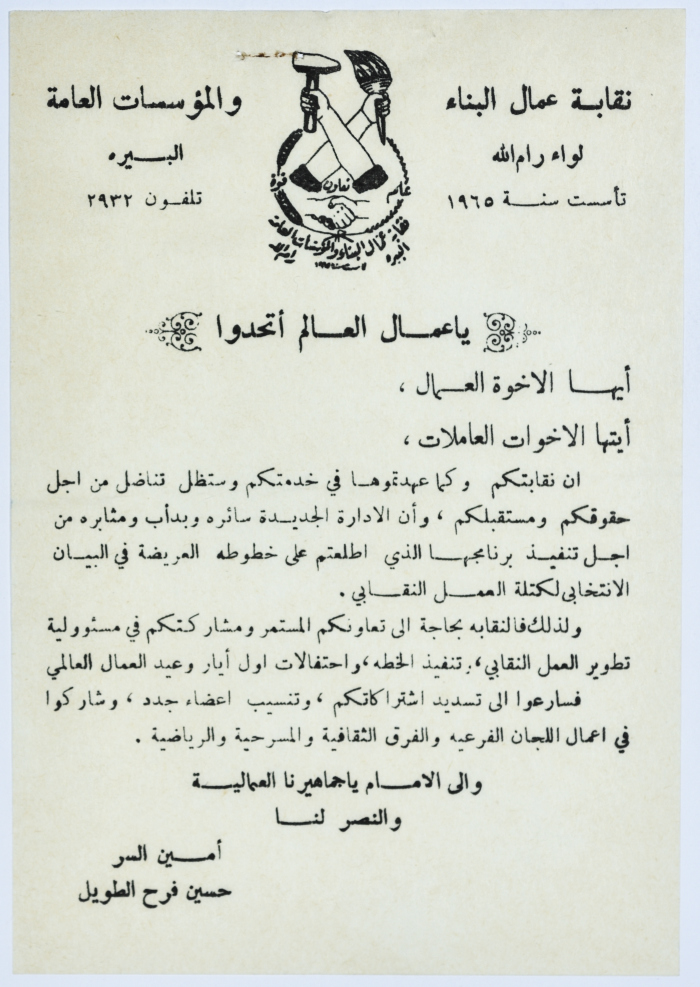 نقابة عمال البناء والمؤسسات العامة
لواء رام الله البـــيره
تأسست سنـــة ١٩٦٥ تلفــون ٢٩٣٢
تعاون
علم
قوة
نقابة عمال البناء والمؤسسات العامة
البيره رام الله
ياعمـــال العـــالم أتحدوا
أيهـــا الاخوة العـــمال ،
أيتها الاخوات العاملات ،
ان نقابتكم وكما عهدتموهـا في خدمتكم وستظل تناضل من اجل
حقوقكم ومستقبلكم ، وأن الادارة الجديـدة سائره وبدأب ومثابره من
اجـل تنفيـذ برنامجهـا الذي اطلعتم على خطوطه العريضة في البيـان
الانتخابي لكتلة العمـــل النقـابي .
ولذلك فالنقابه بحاجة الى تعاونكم المستمر ومشاركتكم في مسئوولية
تطوير العمل النقابي، بتنفيذ الخطه، واحتفالات اول أيار وعيد العمال العالمي
فسارعوا الى تسديد اشتراكاتكم ، وتنسيب اعضاء جدد ، وشاركوا
في اعمال اللجان الفرعيه والفرق الثقافية والمسرحية والرياضية .
والى الامـــام ياجماهيرنا العماليـــة
والنصر لنـــا
أمـــين السر
حسين فرح الطويل